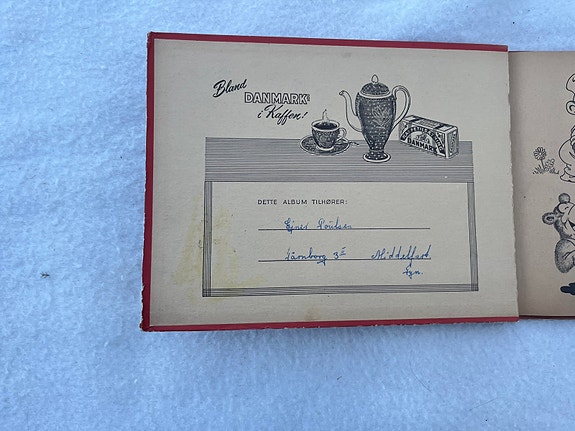 Bland
DANMARKS
i Kaffen!
DANMARK
DETTE ALBUM TILHØRER:
Ejner Poulsen
3 Middelfart
Fyn.